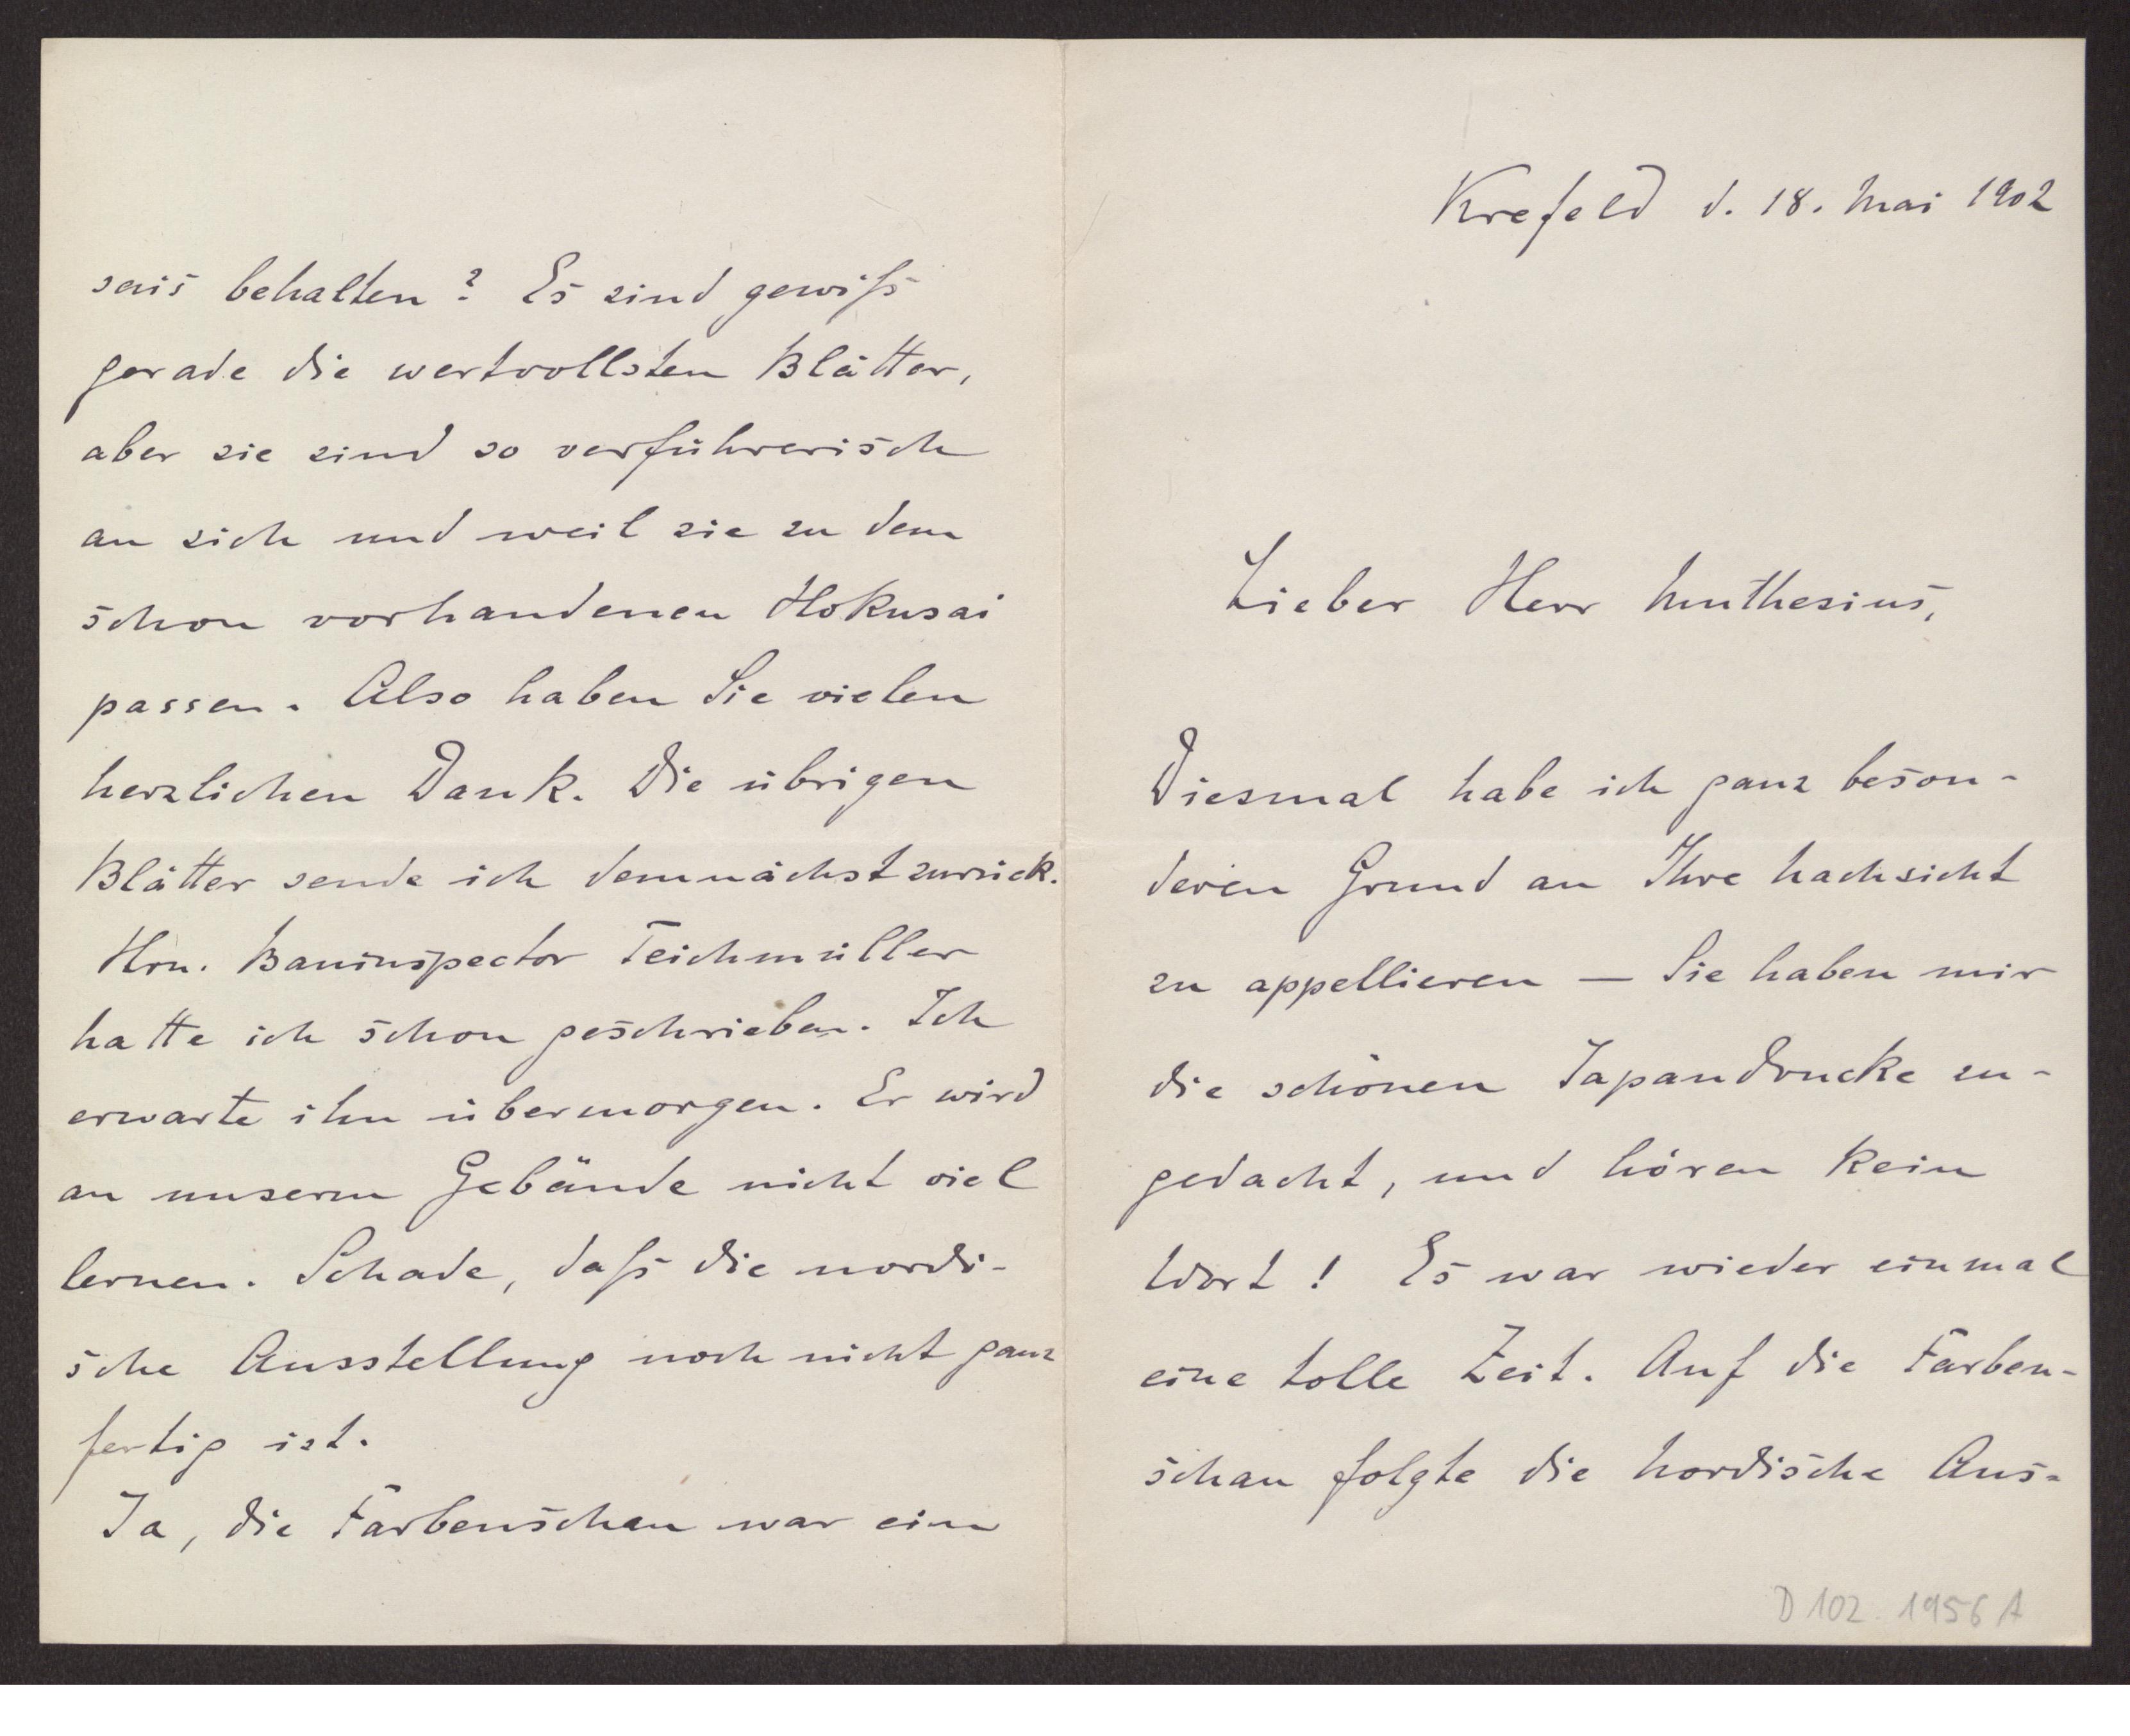 Krefeld d. 18. Mai 1902
Lieber Herr Muthesius,
Diesmal habe ich ganz beson-
deren Grund an Ihre Nachsicht
zu appellieren — Sie haben mir
die schönen Japandrucke zu-
gedacht, und hören kein
Wort! Es war wieder einmal
eine tolle Zeit. Auf die Farben-
schau folgte die Nordische Aus-
D 102. 1956 A
sais behalten? Es sind gewiß
gerade die wertvollsten Blätter,
aber sie sind so verführerisch
an sich und weil sie zu dem
schon vorhandenen Hokusai
passen. Also haben Sie vielen
herzlichen Dank. Die übrigen
Blätter sende ich demnächst zurück.
Hrn. Bauinspector Teichmüller
hatte ich schon geschrieben. Ich
erwarte ihn übermorgen. Er wird
an unserm Gebäude nicht viel
lernen. Schade, daß die nordi-
sche Ausstellung noch nicht ganz
fertig ist.
Ja, die Farbenschau war ein